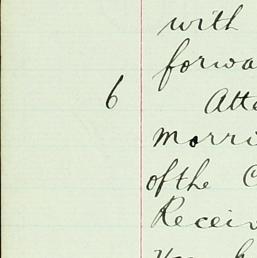 with
forwa
6 Atte
Morri
of the C
Receiv